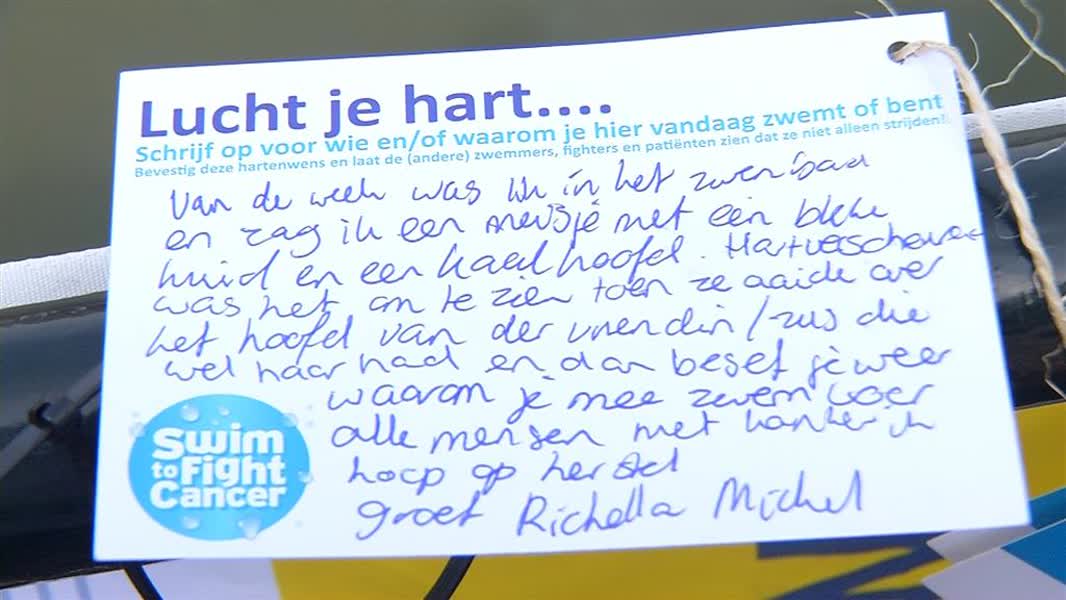 Lucht je hart....
Schrijf op voor wie en/of waarom je hier vandaag zwemt of bent
Bevestig deze hartenwens en laat de (andere) zwemmers, fighters en patiënten zien dat ze niet alleen strijden!
Van de week was ik in het zwembad
en zag ik een meisje met een bleke
huid en een kaal hoofd. Hartverscheurend
was het om te zien toen ze aaide over
het hoofd van der vriendin/zus die
wel haar had en dan besef je weer
waarom je mee zwem voor
alle mensen met kanker ik
hoop op herstel
groet Richella Michel
Swim
to Fight
Cancer